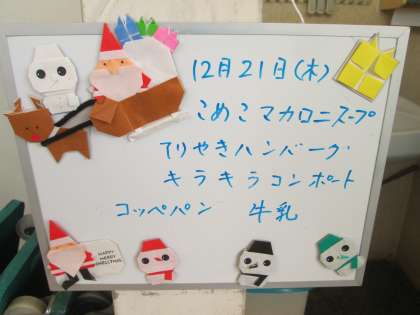 12月21日(木)
こめこマカロニスープ
てりやきハンバーグ
キラキラコンポート
コッペパン 牛乳
HAPPY MERRY CHRISTMAS